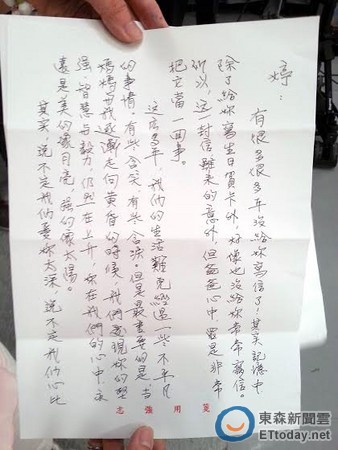 婷：
有很多很多年沒給妳寫信了！其實記憶中
除了給妳寫生日賀卡外，好像也沒給妳常常寫信。
所以，這一封信雖來的意外，但爸爸心中，還是非常
把它當一回事。
這么多年，我們的生活難免經過一些不平凡
的事情，有些含笑，有些含淚。但是最重要的是，當
媽媽與我逐漸走向黃昏的時候，我們發現妳的堅
強、智慧与毅力，仍然在上升，妳在我們的心中，永
遠是美的像月亮，強的像太陽。
其实，說不定我們愛妳太深，說不定我們心比
志強用箋
東森新聞雲
ETtoday.net